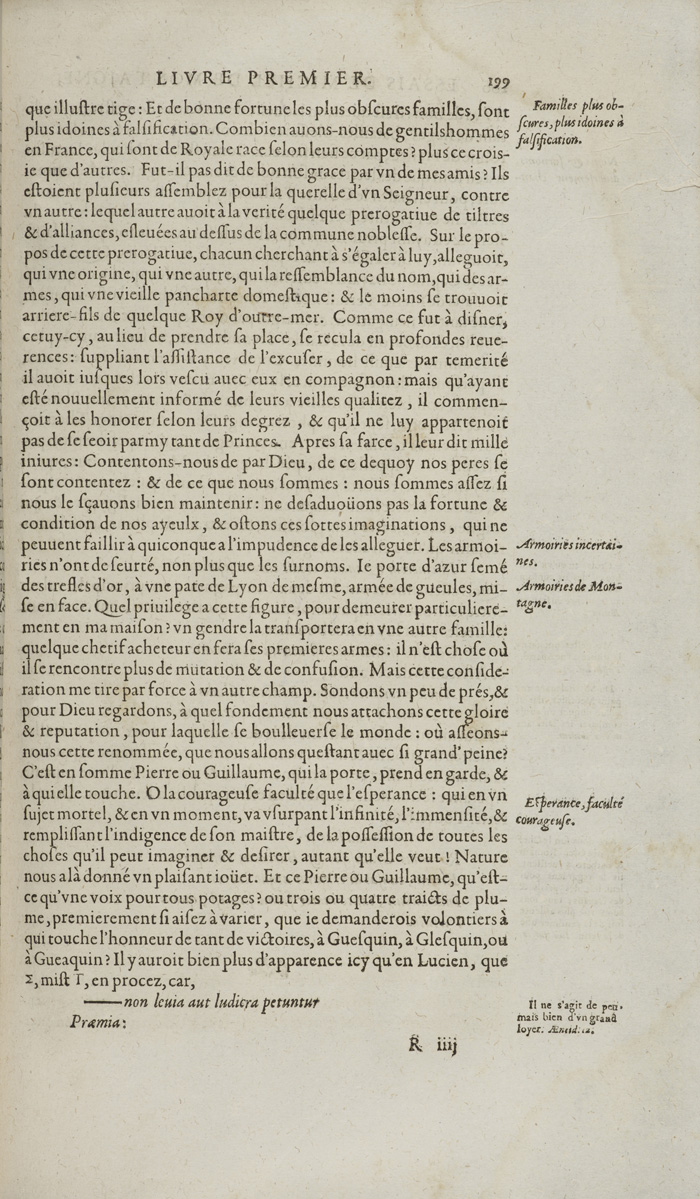 LIVRE PREMIER. 199
que illuſtre tige: Et de bonne fortune les plus obſcures familles, ſont
plus idoines à falſification. Combien auons-nous de gentilshommes
en France, qui ſont de Royale race ſelon leurs comptes? plus ce crois-
ie que d'autres. Fut-il pas dit de bonne grace par vn de mes amis? Ils
eſtoient pluſieurs aſſemblez pour la querelle d'vn Seigneur, contre
vn autre: lequel autre auoit à la verité quelque prerogatiue de tiltres
& d'alliances, eſleuées au deſſus de la commune nobleſſe. Sur le pro-
pos de cette prerogatiue, chacun cherchant à s'égaler à luy, alleguoit,
qui vne origine, qui vne autre, qui la reſſemblance du nom, qui des ar-
mes, qui vne vieille pancharte domeſtique: & le moins ſe trouuoit
arriere-fils de quelque Roy d'outre-mer. Comme ce fut à diſner,
cetuy-cy, au lieu de prendre ſa place, ſe recula en profondes reue-
rences: ſuppliant l'aſſiſtance de l'excuſer, de ce que par temerité
il auoit iuſques lors veſcu auec eux en compagnon: mais qu'ayant
eſté nouuellement informé de leurs vieilles qualitez, il commen-
çoit à les honorer ſelon leurs degrez, & qu'il ne luy appartenoit
pas de ſe ſeoir parmy tant de Princes. Apres ſa farce, il leur dit mille
iniures: Contentons-nous de par Dieu, de ce dequoy nos peres ſe
ſont contentez: & de ce que nous ſommes: nous ſommes aſſez ſi
nous le ſçauons bien maintenir: ne deſaduoüons pas la fortune &
condition de nos ayeulx, & oſtons ces ſottes imaginations, qui ne
peuuent faillir à quiconque a l'impudence de les alleguer. Les armoi-
ries n'ont de ſeurté, non plus que les ſurnoms. Ie porte d'azur ſemé
des trefles d'or, à vne pate de Lyon de meſme, armée de gueules, mi-
ſe en face. Quel priuilege a cette figure, pour demeurer particuliere-
ment en ma maiſon? vn gendre la tranſportera en vne autre famille:
quelque chetif acheteur en fera ſes premieres armes: il n'eſt choſe où
il ſe rencontre plus de mutation & de confuſion. Mais cette conſide-
ration me tire par force à vn autre champ. Sondons vn peu de prés, &
pour Dieu regardons, à quel fondement nous attachons cette gloire
& reputation, pour laquelle ſe boulleuerſe le monde: où aſſeons-
nous cette renommée, que nous allons queſtant auec ſi grand' peine?
C'eſt en ſomme Pierre ou Guillaume, qui la porte, prend en garde, &
à qui elle touche. O la courageuſe faculté que l'eſperance: qui en vn
ſujet mortel, & en vn moment, va vſurpant l'infinité, l'immenſité, &
rempliſſant l'indigence de ſon maiſtre, de la poſſeſſion de toutes les
choſes qu'il peut imaginer & deſirer, autant qu'elle veut! Nature
nous a là donné vn plaiſant ioüet. Et ce Pierre ou Guillaume, qu'eſt-
ce qu'vne voix pour tous potages? ou trois ou quatre traicts de plu-
me, premierement ſi aiſez à varier, que ie demanderois volontiers à
qui touche l'honneur de tant de victoires, à Gueſquin, à Gleſquin, ou
à Gueaquin? Il y auroit bien plus d'apparence icy qu'en Lucien, que
Σ, miſt Τ, en procez, car,
——non leuia aut ludicra petuntur
Præmia:
R iiij
Familles plus ob-
ſcures, plus idoines à
falſification.
Armoiries incertai-
nes.
Armoiries de Mon-
tagne.
Eſperance, faculté
courageuſe.
Il ne s'agit de peu,
mais bien d'vn grand
loyer. Æneid. 12.